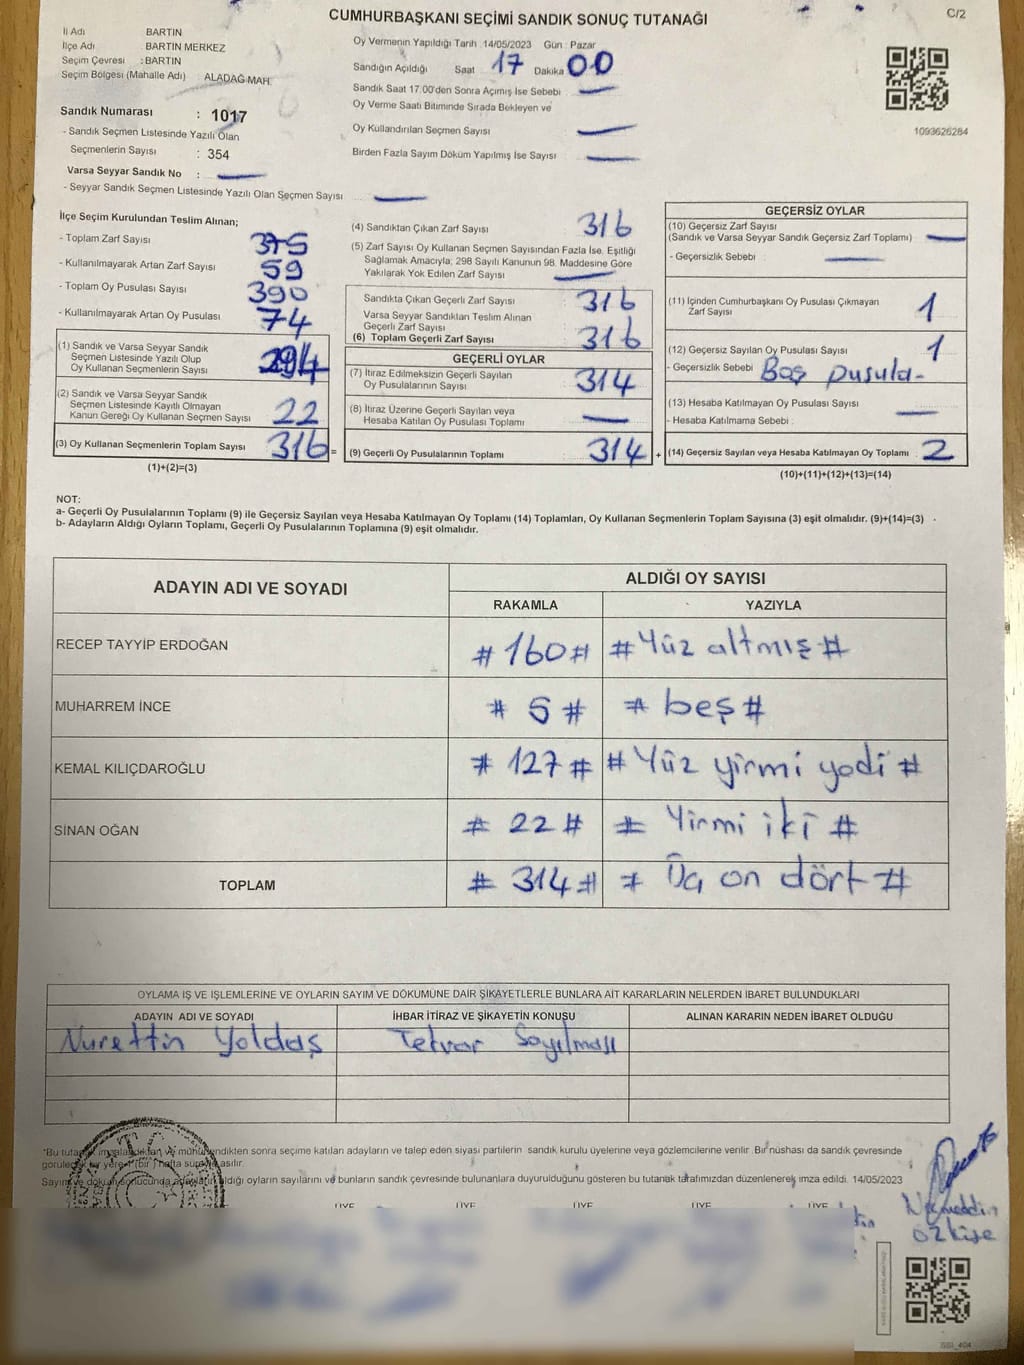 CUMHURBAŞKANI SEÇİMİ SANDIK SONUÇ TUTANAĞI
C/2
İl Adı BARTIN
İlçe Adı BARTIN MERKEZ
Seçim Çevresi : BARTIN
Seçim Bölgesi (Mahalle Adı) : ALADAĞ MAH.
Sandık Numarası : 1017
- Sandık Seçmen Listesinde Yazılı Olan
Seçmenlerin Sayısı : 354
Varsa Seyyar Sandık No : —
- Seyyar Sandık Seçmen Listesinde Yazılı Olan Seçmen Sayısı —
Oy Vermenin Yapıldığı Tarih : 14/05/2023 Gün : Pazar
Sandığın Açıldığı Saat 17 Dakika 00
Sandık Saat 17.00'den Sonra Açımış İse Sebebi —
Oy Verme Saati Bitiminde Sırada Bekleyen ve
Oy Kullandırılan Seçmen Sayısı —
Birden Fazla Sayım Döküm Yapılmış İse Sayısı —
1093626284
İlçe Seçim Kurulundan Teslim Alınan;
- Toplam Zarf Sayısı 375
- Kullanılmayarak Artan Zarf Sayısı 59
- Toplam Oy Pusulası Sayısı 390
- Kullanılmayarak Artan Oy Pusulası 74
(1) Sandık ve Varsa Seyyar Sandık
Seçmen Listesinde Yazılı Olup
Oy Kullanan Seçmenlerin Sayısı 294
(2) Sandık ve Varsa Seyyar Sandık
Seçmen Listesinde Kayıtlı Olmayan
Kanun Gereği Oy Kullanan Seçmen Sayısı 22
(3) Oy Kullanan Seçmenlerin Toplam Sayısı 316 =
(1)+(2)=(3)
(4) Sandıktan Çıkan Zarf Sayısı 316
(5) Zarf Sayısı Oy Kullanan Seçmen Sayısından Fazla İse, Eşitliği
Sağlamak Amacıyla; 298 Sayılı Kanunun 98. Maddesine Göre
Yakılarak Yok Edilen Zarf Sayısı —
Sandıkta Çıkan Geçerli Zarf Sayısı 316
Varsa Seyyar Sandıktan Teslim Alınan
Geçerli Zarf Sayısı
(6) Toplam Geçerli Zarf Sayısı 316
GEÇERLİ OYLAR
(7) İtiraz Edilmeksizin Geçerli Sayılan
Oy Pusulalarının Sayısı 314
(8) İtiraz Üzerine Geçerli Sayılan veya
Hesaba Katılan Oy Pusulası Toplamı —
(9) Geçerli Oy Pusulalarının Toplamı 314 +
GEÇERSİZ OYLAR
(10) Geçersiz Zarf Sayısı
(Sandık ve Varsa Seyyar Sandık Geçersiz Zarf Toplamı) —
- Geçersizlik Sebebi : —
(11) İçinden Cumhurbaşkanı Oy Pusulası Çıkmayan
Zarf Sayısı 1
(12) Geçersiz Sayılan Oy Pusulası Sayısı 1
- Geçersizlik Sebebi : Boş pusula-
(13) Hesaba Katılmayan Oy Pusulası Sayısı —
- Hesaba Katılmama Sebebi :
(14) Geçersiz Sayılan veya Hesaba Katılmayan Oy Toplamı 2
(10)+(11)+(12)+(13)=(14)
NOT:
a- Geçerli Oy Pusulalarının Toplamı (9) ile Geçersiz Sayılan veya Hesaba Katılmayan Oy Toplamı (14) Toplamları, Oy Kullanan Seçmenlerin Toplam Sayısına (3) eşit olmalıdır. (9)+(14)=(3)
b- Adayların Aldığı Oyların Toplamı, Geçerli Oy Pusulalarının Toplamına (9) eşit olmalıdır.
ADAYIN ADI VE SOYADI ALDIĞI OY SAYISI
RAKAMLA YAZIYLA
RECEP TAYYİP ERDOĞAN # 160 # # Yüz altmış #
MUHARREM İNCE # 5 # # beş #
KEMAL KILIÇDAROĞLU # 127 # # Yüz yirmi yedi #
SİNAN OĞAN # 22 # # Yirmi iki #
TOPLAM # 314 # # Üç on dört #
OYLAMA İŞ VE İŞLEMLERİNE VE OYLARIN SAYIM VE DÖKÜMÜNE DAİR ŞİKAYETLERLE BUNLARA AİT KARARLARIN NELERDEN İBARET BULUNDUKLARI
ADAYIN ADI VE SOYADI İHBAR İTİRAZ VE ŞİKAYETİN KONUSU ALINAN KARARIN NEDEN İBARET OLDUĞU
Nurettin Yoldaş Tekrar Sayılması
*Bu tutanak imzalandıktan ve mühürlendikten sonra seçime katılan adayların ve talep eden siyasi partilerin sandık kurulu üyelerine veya gözlemcilerine verilir. Bir nüshası da sandık çevresinde
görülecek bir yere 1 (bir) hafta süreyle asılır.
Sayım ve döküm sonucunda adayların aldığı oyların sayılarını ve bunların sandık çevresinde bulunanlara duyurulduğunu gösteren bu tutanak tarafımızdan düzenlenerek imza edildi. 14/05/2023
ÜYE ÜYE ÜYE ÜYE ÜYE
Necmeddin